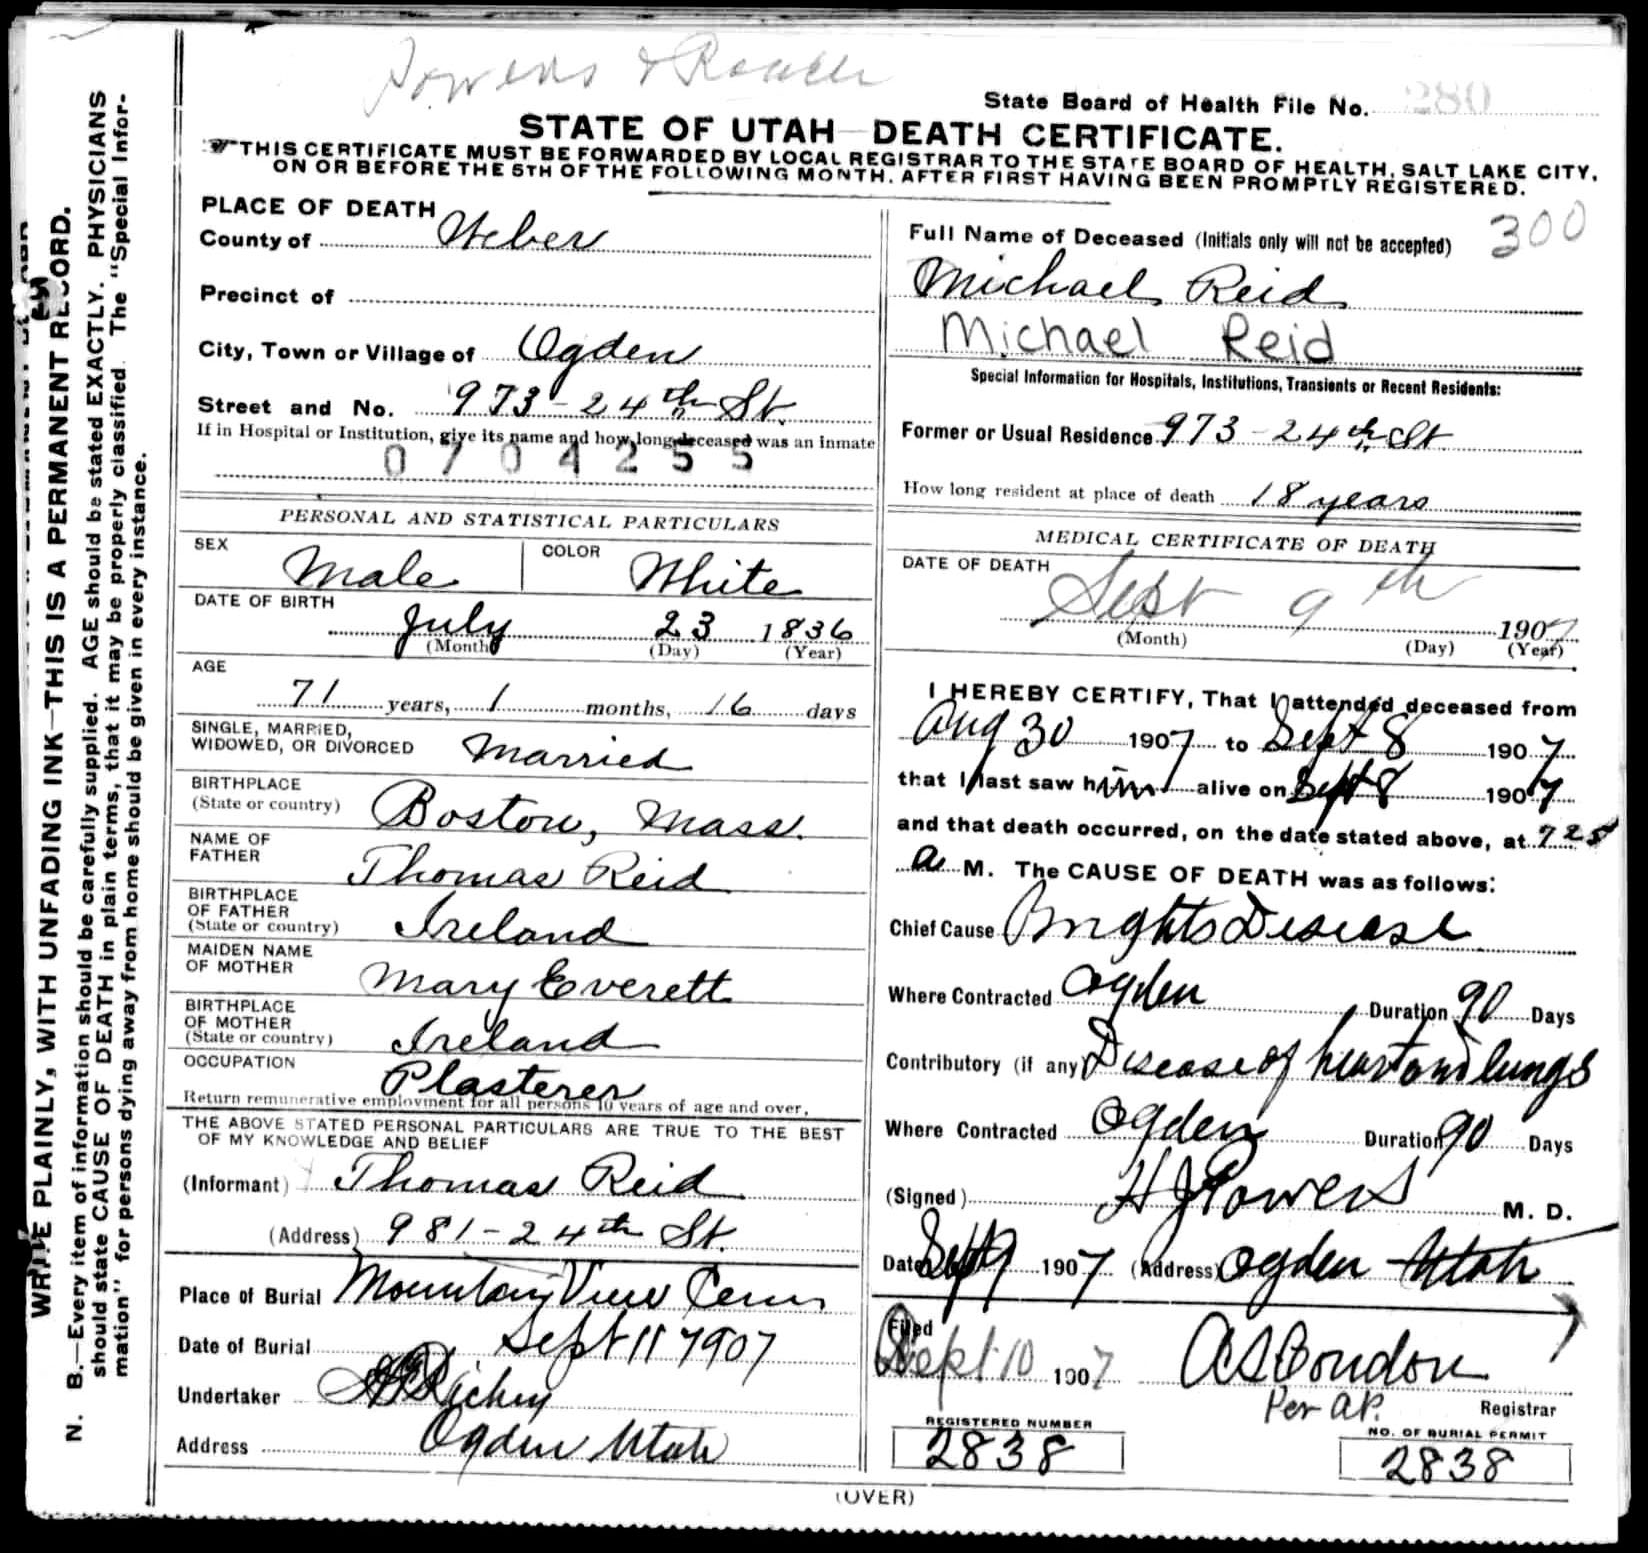 Powens & Roach
State Board of Health File No. 280
STATE OF UTAH—DEATH CERTIFICATE.
THIS CERTIFICATE MUST BE FORWARDED BY LOCAL REGISTRAR TO THE STATE BOARD OF HEALTH, SALT LAKE CITY,
ON OR BEFORE THE 5TH OF THE FOLLOWING MONTH, AFTER FIRST HAVING BEEN PROMPTLY REGISTERED.
WRITE PLAINLY, WITH UNFADING INK—THIS IS A PERMANENT RECORD.
N. B.—Every item of information should be carefully supplied. AGE should be stated EXACTLY. PHYSICIANS
should state CAUSE OF DEATH in plain terms, that it may be properly classified. The "Special Infor-
mation" for persons dying away from home should be given in every instance.
PLACE OF DEATH
County of Weber
Precinct of
City, Town or Village of Ogden
Street and No. 973-24th St.
If in Hospital or Institution, give its name and how long deceased was an inmate
0704255
PERSONAL AND STATISTICAL PARTICULARS
SEX Male COLOR White
DATE OF BIRTH
July 23 1836
(Month) (Day) (Year)
AGE
71 years, 1 months, 16 days
SINGLE, MARRIED,
WIDOWED, OR DIVORCED Married
BIRTHPLACE
(State or country) Boston, Mass.
NAME OF
FATHER Thomas Reid
BIRTHPLACE
OF FATHER
(State or country) Ireland
MAIDEN NAME
OF MOTHER Mary Everett
BIRTHPLACE
OF MOTHER
(State or country) Ireland
OCCUPATION
Plasterer
Return remunerative employment for all persons 10 years of age and over,
THE ABOVE STATED PERSONAL PARTICULARS ARE TRUE TO THE BEST
OF MY KNOWLEDGE AND BELIEF
(Informant) Thomas Reid
(Address) 981-24th St.
Place of Burial Mountain View Cem
Date of Burial Sept 11 1907
Undertaker Richey
Address Ogden Utah
Full Name of Deceased (Initials only will not be accepted) 300
Michael Reid
Michael Reid
Special Information for Hospitals, Institutions, Transients or Recent Residents:
Former or Usual Residence 973-24th St
How long resident at place of death 18 years
MEDICAL CERTIFICATE OF DEATH
DATE OF DEATH
Sept 9th 1907
(Month) (Day) (Year)
I HEREBY CERTIFY, That I attended deceased from
Aug 30 1907 to Sept 8 1907
that I last saw him alive on Sept 8 1907
and that death occurred, on the date stated above, at 7 25
a M. The CAUSE OF DEATH was as follows:
Chief Cause Brights Disease
Where Contracted Ogden Duration 90 Days
Contributory (if any) Disease of heart and lungs
Where Contracted Ogden Duration 90 Days
(Signed) H J Powers M. D.
Date Sept 9 1907 (Address) Ogden Utah
Filed
Sept 10 1907 A S Condon
Per A.P. Registrar
REGISTERED NUMBER
2838
NO. OF BURIAL PERMIT
2838
(OVER)